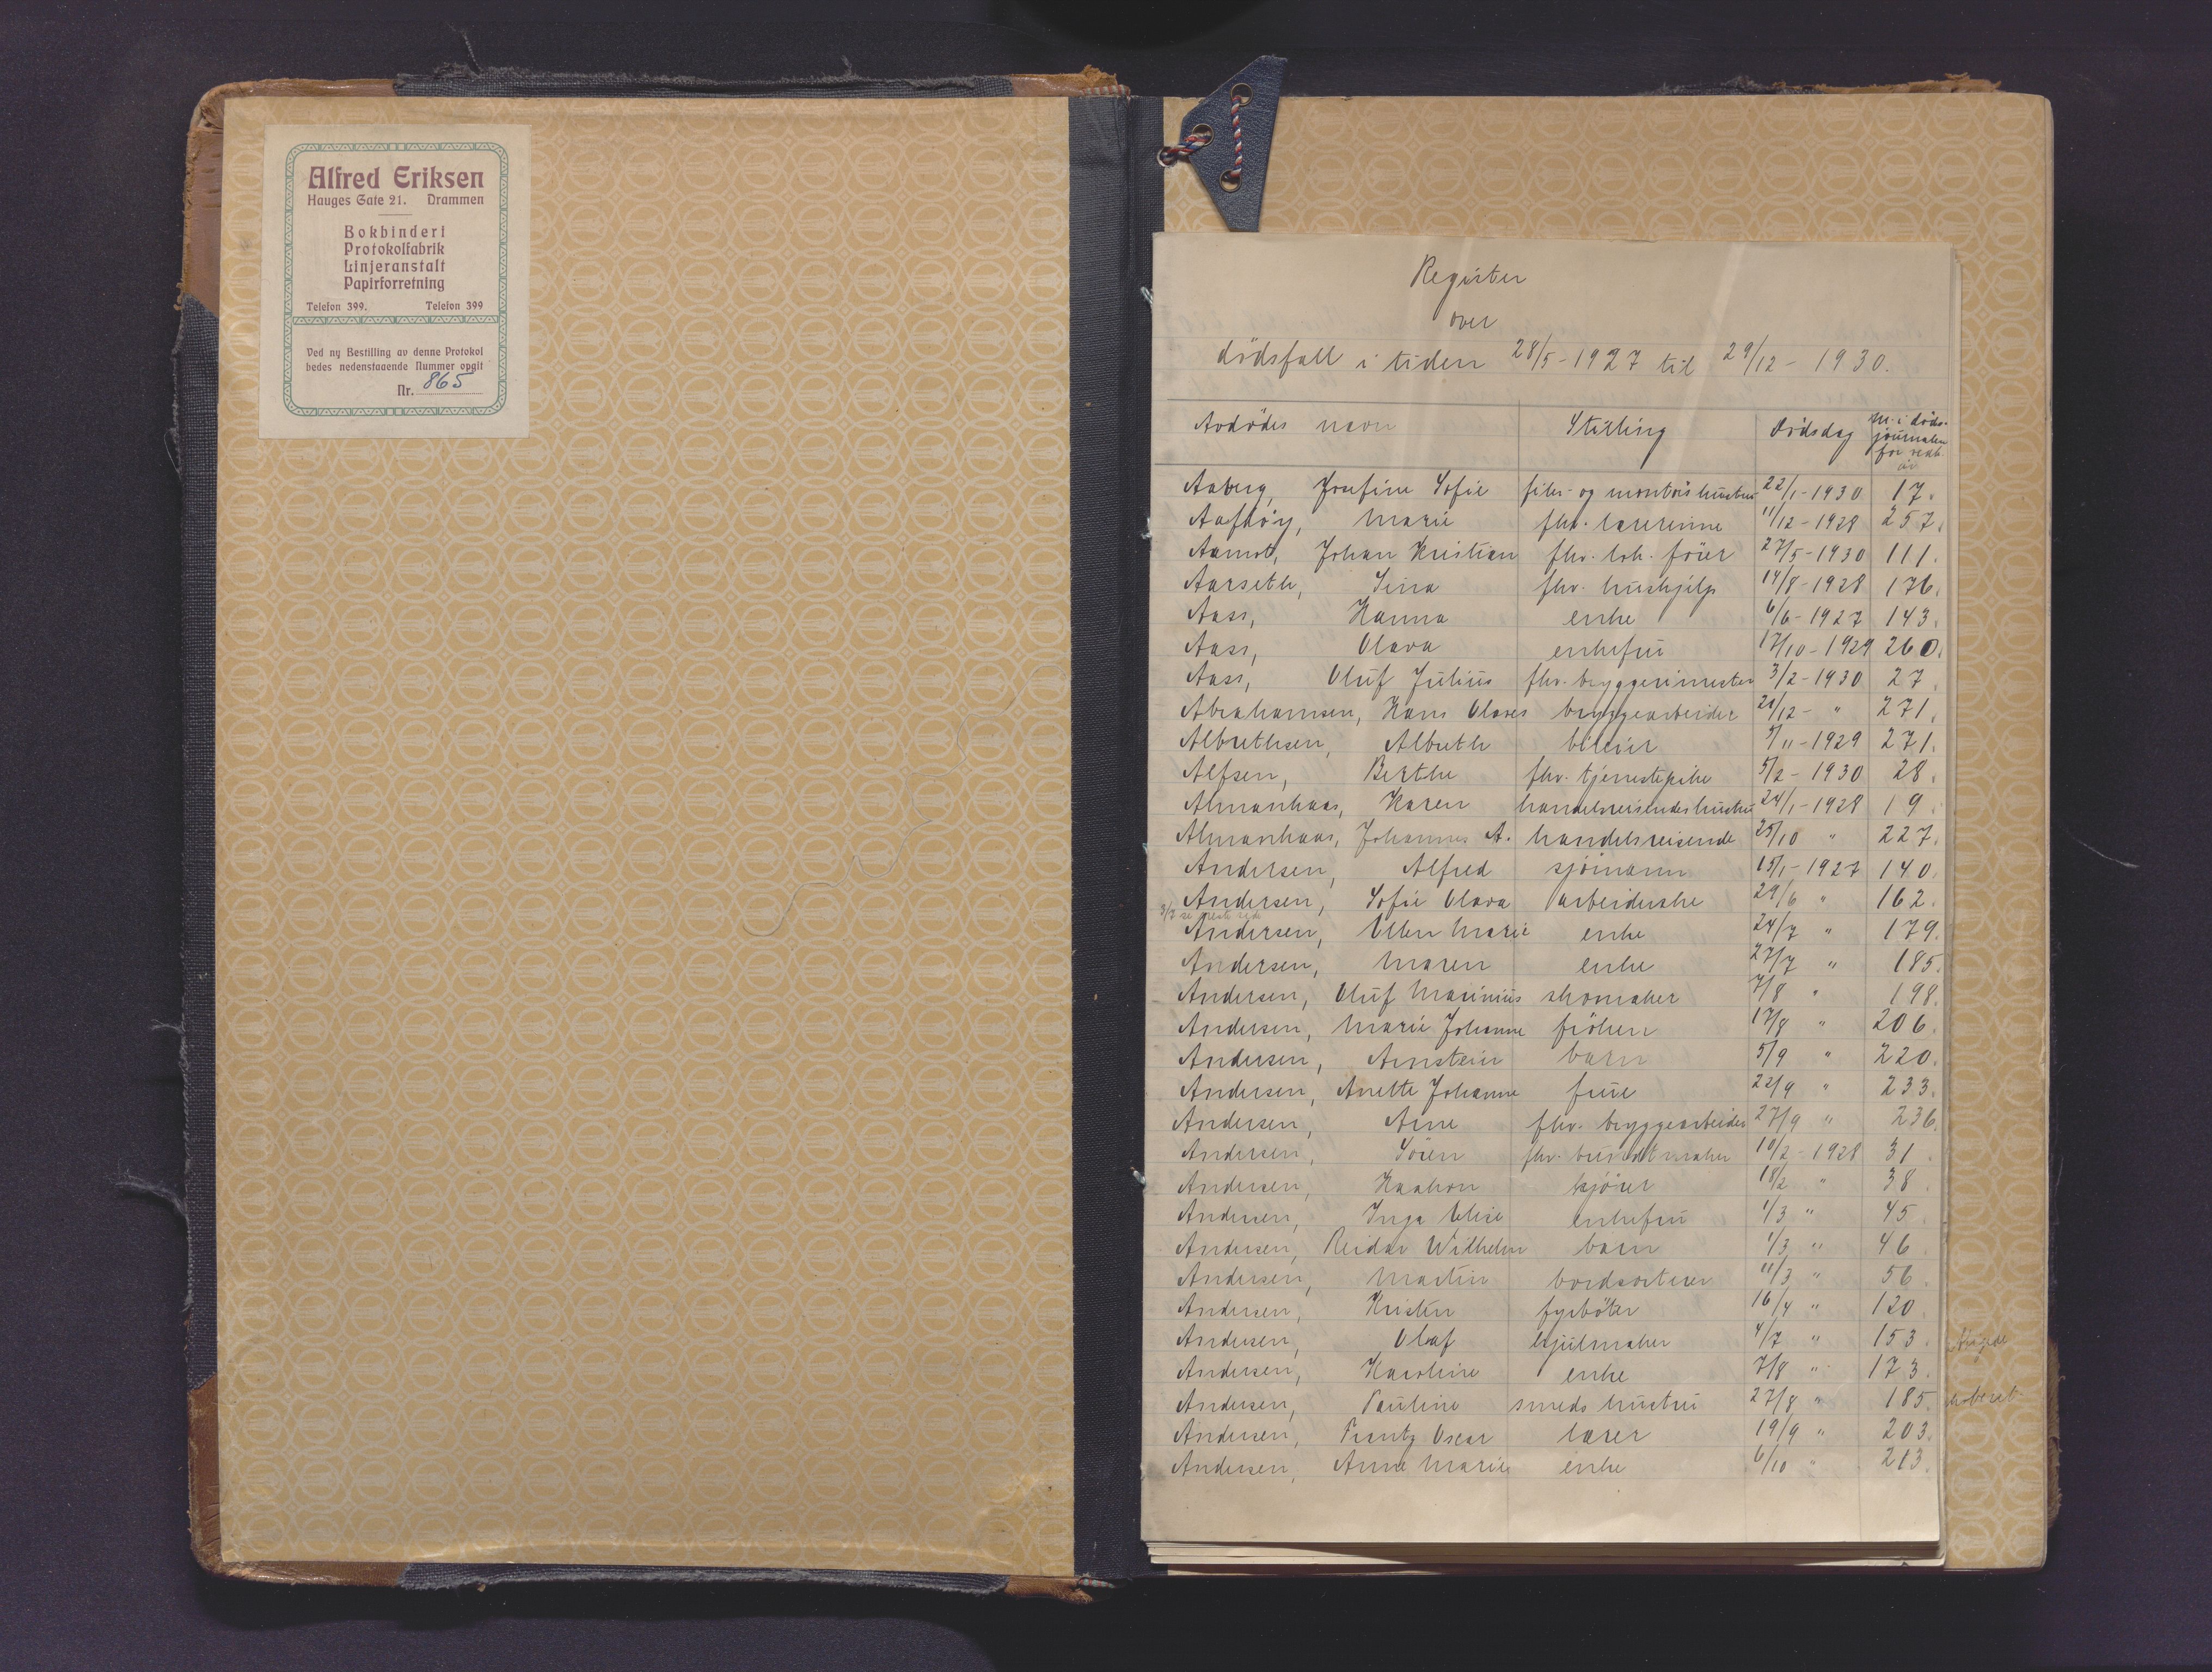 Alfred Eriksen
Hauges Gate 21. Drammen
Bokbinderi
Protokolfabrik
Linjeranstalt
Papirforretning
Telefon 399. Telefon 399
Ved ny Bestilling av denne Protokol
bedes nedenstaaende Nummer opgit
Nr. 865
Register
over
dödsfall i tiden 28/5-1927 til 29/12-1930.
Avdödes navn Stilling Dödsdag Nr. i döds-
journalen
for vedk.
år
Aaberg, Josefine Sofie filer- og montörshustru 22/1-1930 17.
Marie fhv. lærerinne 11/12-1928 257.
Aamot, Johan Kristian fhv. lok. förer 27/5-1930 111.
Aarseth, Sina fhv. hushjelp 14/8-1928 176.
Aass, Hanna enke 6/6-1927 143.
Aass, Olava enkefru 17/10-1929 260.
Aass, Oluf Julius fhv. bryggerimester 3/2-1930 27.
Abrahamsen, Hans Olaves bryggearbeider 21/12- " 271.
Albrethsen, Albreth bileier 5/11-1929 271.
Alfsen, Berthe fhv. tjenestepike 5/2-1930 28.
Almankaas, Karen handelsreisendes hustru 24/1-1928 19.
Almankaas, Johannes A. handelsreisende 25/10 " 227.
Andersen, Alfred sjömann 15/1-1927 140.
Andersen, Sofie Olava arbeiderske 29/6 " 162.
3/7 se neste side
Andersen, Ellen Marie enke 24/7 " 179.
Andersen, Maren enke 27/7 " 185.
Andersen, Oluf Marinius skomaker 7/8 " 198.
Andersen, Marie Johanne fröken 17/8 " 206.
Andersen, Arnstein barn 5/9 " 220.
Andersen, Anette Johanne frue 22/9 " 233.
Andersen, Arne fhv. bryggearbeider 27/9 " 236.
Andersen, Sören fhv. buntmaker 10/2-1928 31.
Andersen, Haakon kjörer 18/2 " 38.
Andersen, Inga Elise enkefru 1/3 " 45
Andersen, Reidar Wilhelm barn 1/3 " 46
Andersen, Martin bordsorterer 11/3 " 56.
Andersen, Kristen fyrböter 16/4 " 120.
Andersen, Olaf hjulmaker 4/7 " 153.
Andersen, Karoline enke 7/8 " 173.
Andersen, Pauline smeds hustru 27/8 " 185.
Andersen, Frantz Oscar lærer 19/9 " 203.
Andersen, Anne Marie enke 6/10 " 213.